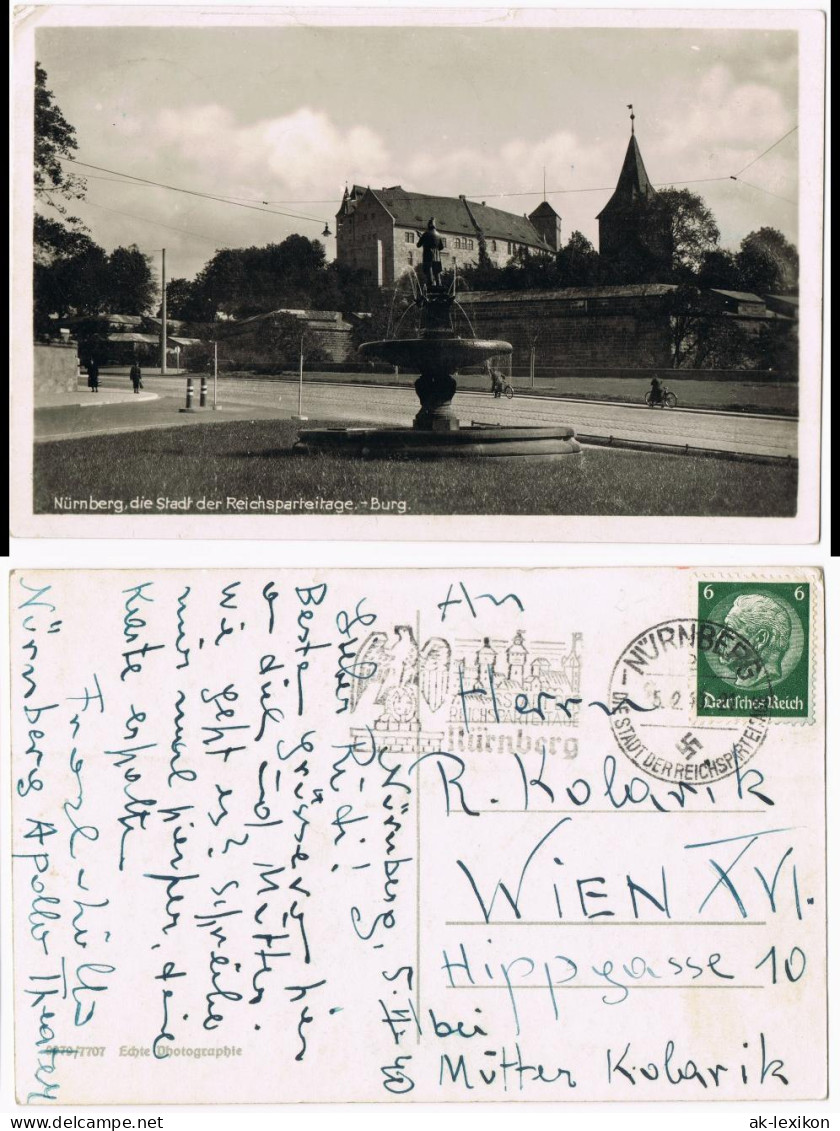 Nürnberg, die Stadt der Reichsparteitage. - Burg.
Nürnberg, 5. II. 40
Lieber Rudi!
Beste Grüsse von hier
an dich und Mutter.
Wie geht es? Schreibe
mir mal hierher, deine
Karte erhalten
Franzl
Nürnberg Apollo Theater
7707 Echte Photographie
REICHSPARTEITAGE
Nürnberg
NÜRNBERG
5.2.
DIE STADT DER REICHSPARTEITAGE
6 6
Deutsches Reich
An
Herrn
R. Kolarik
WIEN XVI.
Hippgasse 10
bei
Mutter Kolarik
ak-lexikon